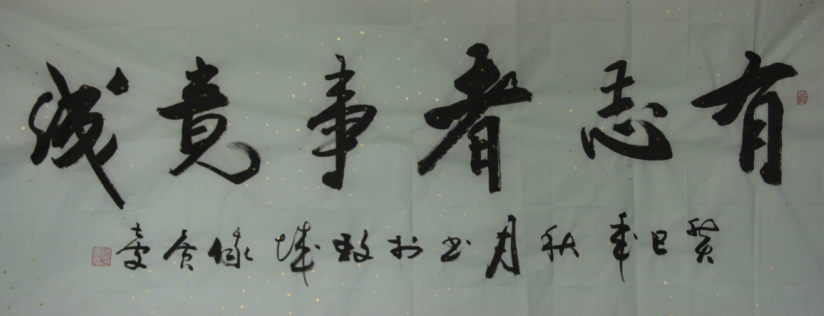 有志者事竟成
癸巳年秋月书于